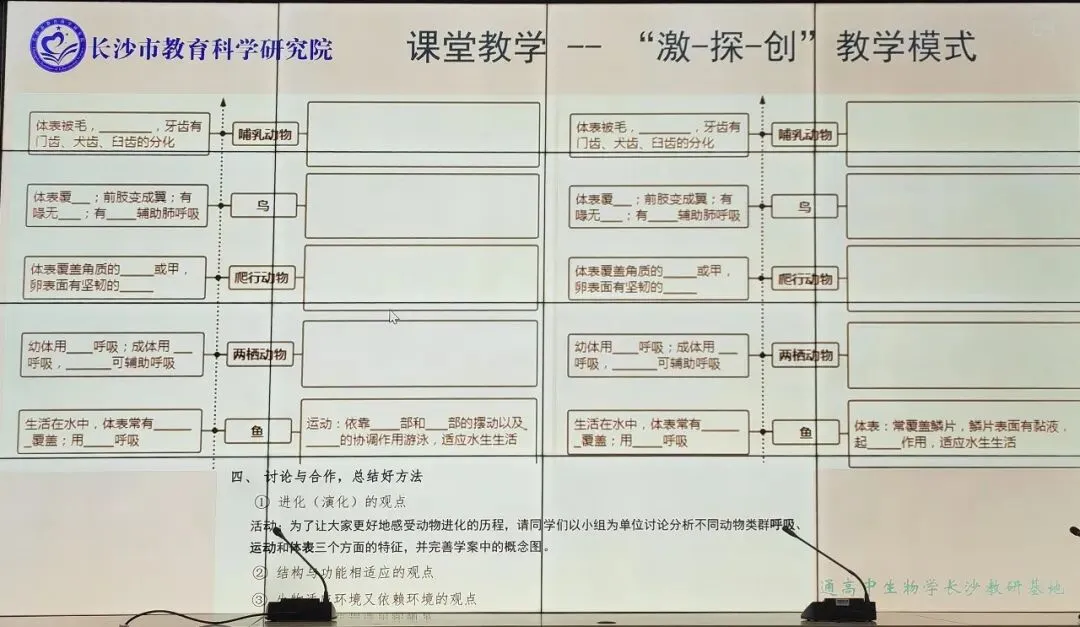 长沙市教育科学研究院
课堂教学 -- “激-探-创”教学模式
体表被毛，______，牙齿有
门齿、犬齿、臼齿的分化
哺乳动物
体表覆__；前肢变成翼；有
喙无__；有___辅助肺呼吸
鸟
体表覆盖角质的____或甲，
卵表面有坚韧的____
爬行动物
幼体用___呼吸；成体用__
呼吸，_____可辅助呼吸
两栖动物
生活在水中，体表常有____
_覆盖；用___呼吸
鱼
运动：依靠___部和___部的摆动以及_
____的协调作用游泳，适应水生生活
体表被毛，______，牙齿有
门齿、犬齿、臼齿的分化
哺乳动物
体表覆__；前肢变成翼；有
喙无__；有___辅助肺呼吸
鸟
体表覆盖角质的____或甲，
卵表面有坚韧的____
爬行动物
幼体用___呼吸；成体用__
呼吸，_____可辅助呼吸
两栖动物
生活在水中，体表常有____
_覆盖；用___呼吸
鱼
体表：常覆盖鳞片，鳞片表面有黏液，
起____作用，适应水生生活
四、讨论与合作，总结好方法
① 进化（演化）的观点
活动：为了让大家更好地感受动物进化的历程，请同学们以小组为单位讨论分析不同动物类群呼吸、
运动和体表三个方面的特征，并完善学案中的概念图。
② 结构与功能相适应的观点
③ 生物适应环境又依赖环境的观点
通高中生物学长沙教研基地